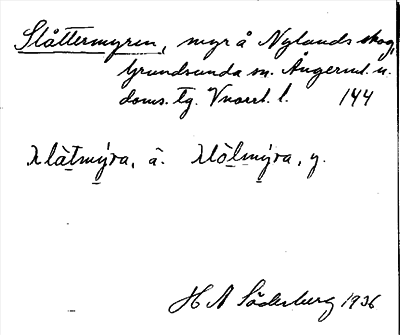 Slåttermyren, myr å Nylands skog,
Grundsunda sn. Ångerml. n.
doms. tg. Vnorrl. l. 144
Slàtmýra, ä. Slòlmýra, y.
H A Söderberg 1936